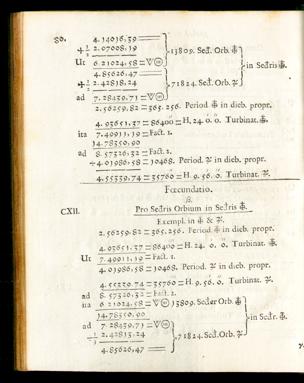 80. 4.14016.39
+½ 2.07008.19 13809. Sect. Orb. ♁
Ut 6.21024.58=V㊀ in Sectris ♁.
4.85626.47
+½ 2.42818.24 71824. Sect. Orb. ♃
ad 7.28439.71=V㊀
2.56259.82=365.256. Period ♁ in dieb. propr.
4.93651.37=86400=H. 24. 0. 0. Turbinat. ♁.
ita 7.49911.19=Fact. 1.
14.78350.90
ad 8.57326.32=Fact. 2.
÷4.01986.58=10468. Period. ♃ in dieb. propr.
4.55339.74=35760=H. 9. 56. 0. Turbinat. ♃.
Fœcundatio.
β.
CXII. Pro Sectris Orbium in Sectris ♁.
Exempl. in ♁ & ♃.
2.56259.82=365.256. Period ♁ in dieb. propr.
4.93651.37=86400=H. 24. 0. 0. Turbinat. ♁.
Ut 7.49911.19=Fact. 1.
4.01986.58=10468. Period. ♃ in dieb. propr.
4.55339.74=35760=H. 9. 56. 0. Turbinat. ♃.
ad 8.57326.32=Fact. 2.
ita 6.21024.58=V㊀ 13809. Sect. Orb. ♁
14.78350.90 in Sectr. ♁.
ad 7.28459.71=V㊀
÷⅓ 2.42813.24 71824. Sect. Orb. ♃
4.85626.47